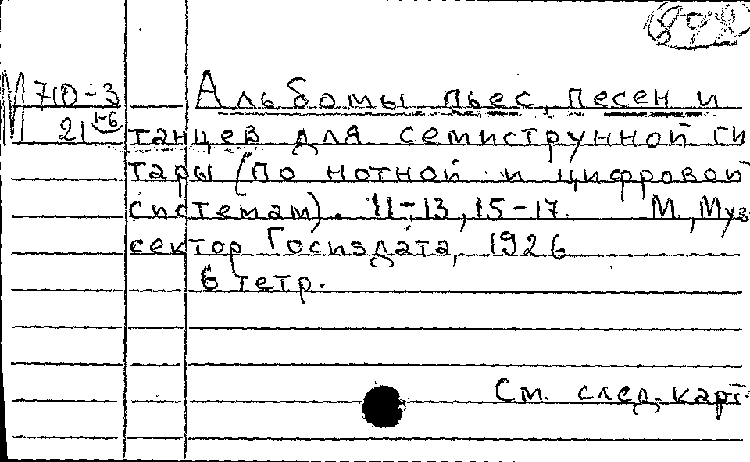 892
М 710-3 Альбомы пьес, песен и
21 1-6 танцев для семиструнной ги
тары (по нотной и цифровой
системам). 11-13, 15-17. М., Муз
сектор Госиздата, 1926
6 тетр.
См. след. карт.